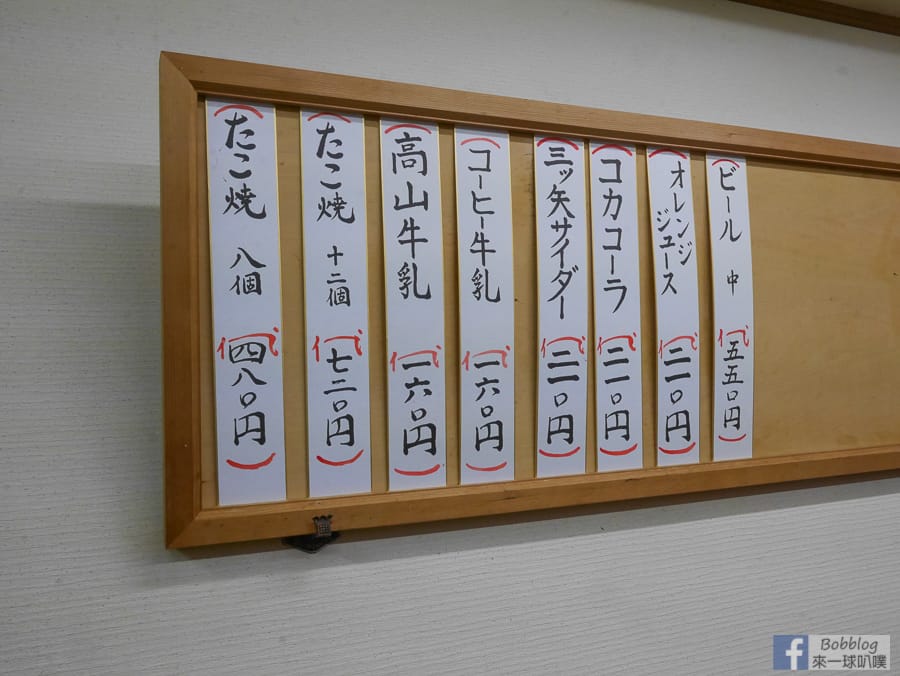 ビール 中 代五五〇円
オレンジ
ジュース 代二一〇円
コカコーラ 代二一〇円
三ッ矢サイダー 代二一〇円
コーヒー牛乳 代一六〇円
高山牛乳 代一六〇円
たこ焼 十二個 代七二〇円
たこ焼 八個 代四八〇円
f Bobblog
來一球叭噗